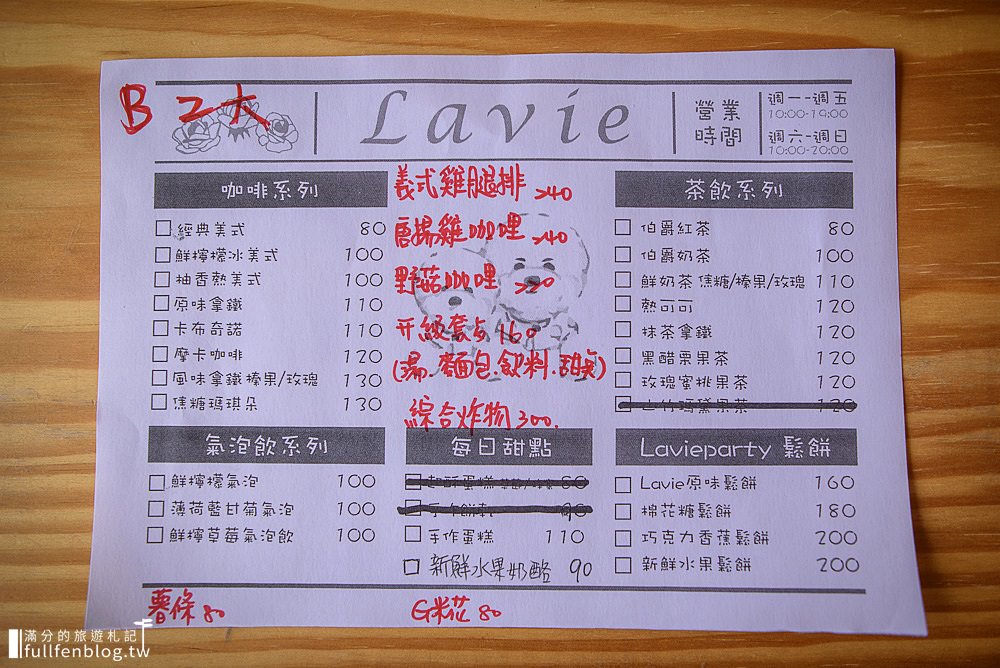 B 2大
Lavie
營業時間
週一-週五
10:00-19:00
週六-週日
10:00-20:00
咖啡系列
經典美式 80
鮮檸檬冰美式 100
柚香熱美式 100
原味拿鐵 110
卡布奇諾 110
摩卡咖啡 120
風味拿鐵 榛果/玫瑰 130
焦糖瑪琪朵 130
義式雞腿排 240
唐揚雞咖哩 240
野菇咖哩 220
升級套餐 160
(湯.麵包.飲料.甜點)
綜合炸物 300.
茶飲系列
伯爵紅茶 80
伯爵奶茶 100
鮮奶茶 焦糖/榛果/玫瑰 110
熱可可 120
抹茶拿鐵 120
黑醋栗果茶 120
玫瑰蜜桃果茶 120
山竹瑪黛果茶 120
氣泡飲系列
鮮檸檬氣泡 100
薄荷藍甘菊氣泡 100
鮮檸草莓氣泡飲 100
每日甜點
80
90
手作蛋糕 110
新鮮水果奶酪 90
Lavieparty 鬆餅
Lavie原味鬆餅 160
棉花糖鬆餅 180
巧克力香蕉鬆餅 200
新鮮水果鬆餅 200
薯條 80
G米花 80
滿分的旅遊札記
fullfenblog.tw